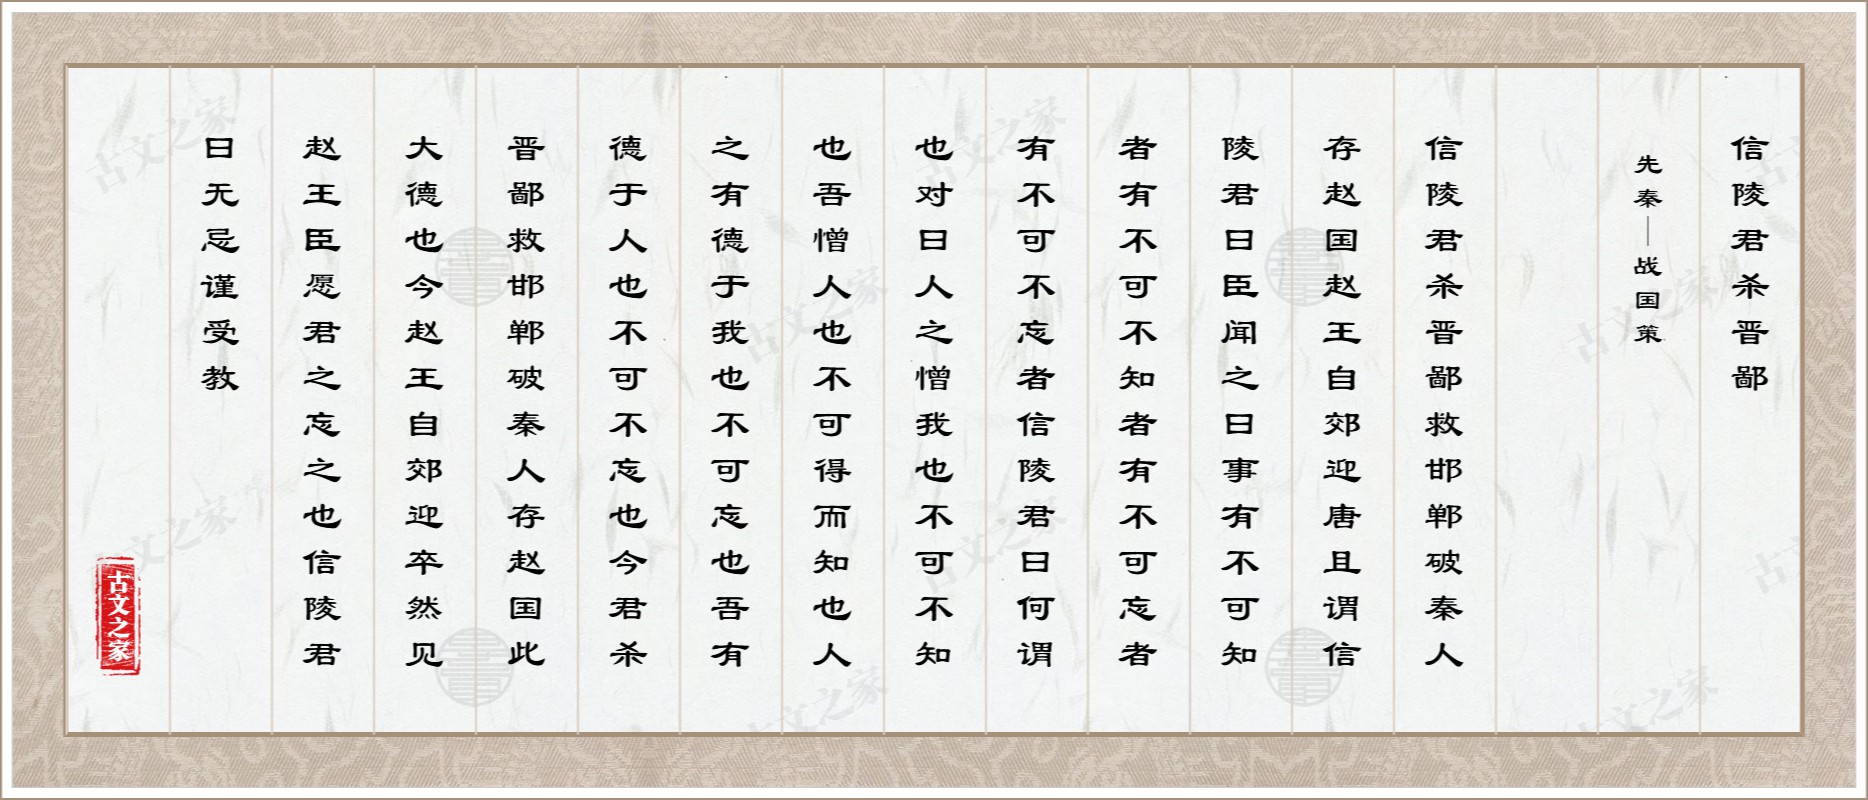 信陵君杀晋鄙
先秦—战国策
信陵君杀晋鄙救邯郸破秦人
存赵国赵王自郊迎唐且谓信
陵君曰臣闻之曰事有不可知
者有不可不知者有不可忘者
有不可不忘者信陵君曰何谓
也对曰人之憎我也不可不知
也吾憎人也不可得而知也人
之有德于我也不可忘也吾有
德于人也不可不忘也今君杀
晋鄙救邯郸破秦人存赵国此
大德也今赵王自郊迎卒然见
赵王臣愿君之忘之也信陵君
曰无忌谨受教
古文之家